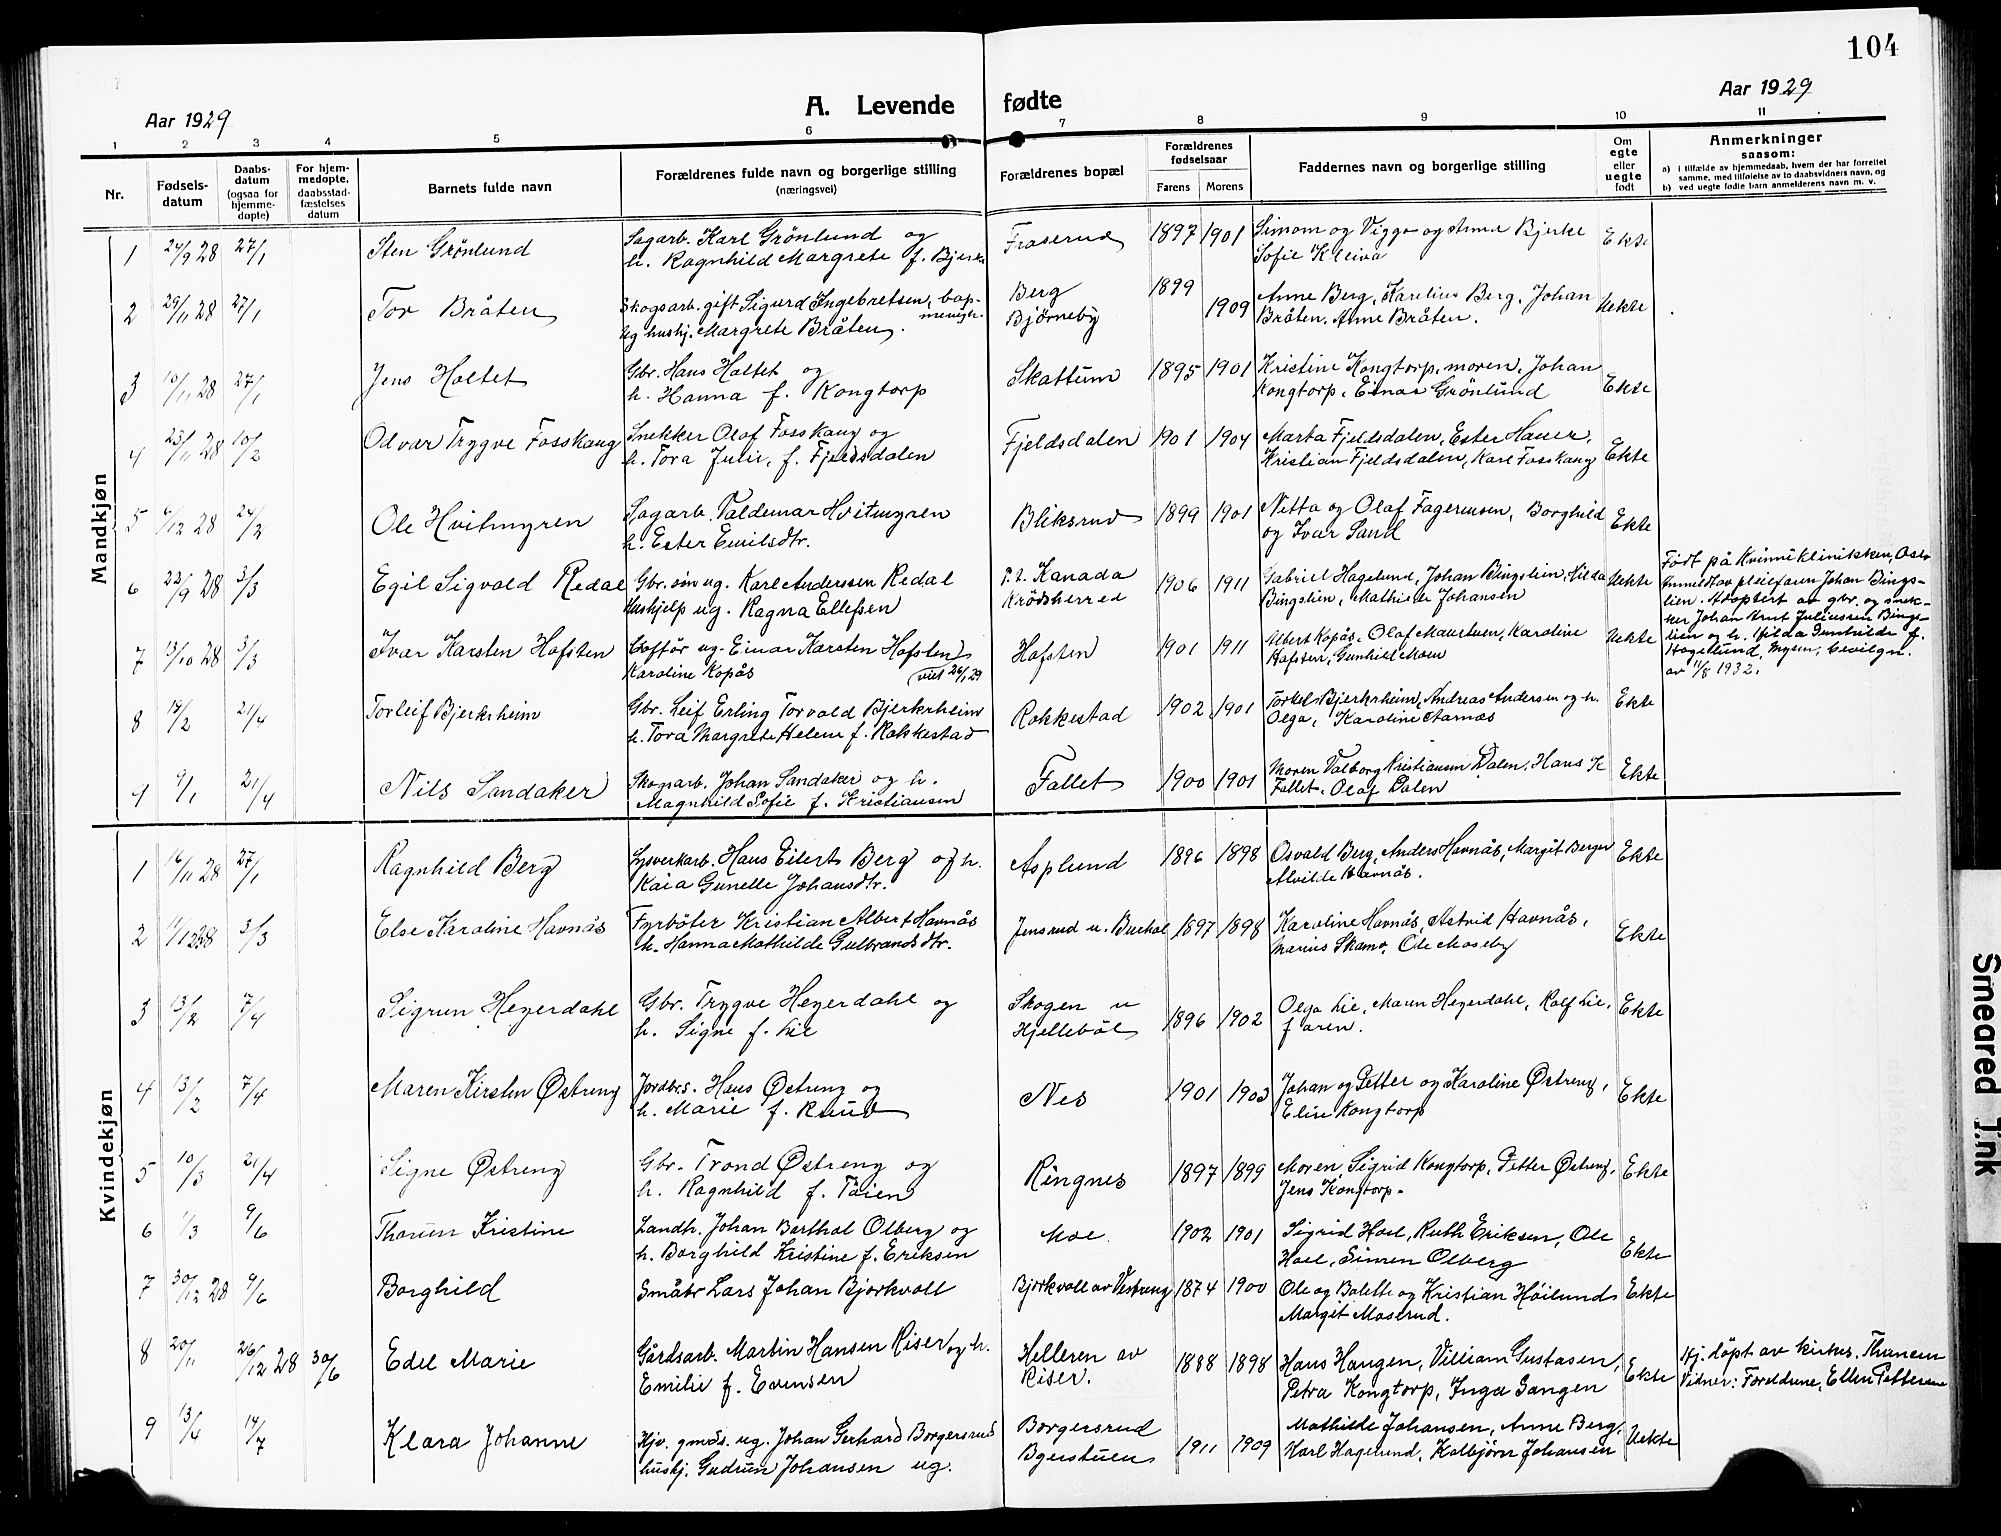 104
Aar 1929
A. Levende fødte
Aar 1929
1 2 3 4 5 6 7 8 9 10 11
Nr.
Fødsels-
datum
Daabs-
datum
(ogsaa for
hjemme-
døpte)
For hjem-
medøpte,
daabsstad-
fæstelses
datum
Barnets fulde navn
Forældrenes fulde navn og borgerlige stilling
(næringsvei)
Forældrenes bopæl
Forældrenes
fødselsaar
Farens Morens
Faddernes navn og borgerlige stilling
Om
egte
eller
uegte
født
Anmerkninger
saasom:
a) i tilfælde av hjemmedaab, hvem der har forrettet
samme, med tilføielse av to daabsvidners navn, og
b) ved uegte fødte barn anmelderens navn m. v.
Mandkjøn
1 24/9 28 27/1 Sten Grönlund Sagarb. Karl Grönlund og Fraserud 1897 1901 Simom og Viggo og Anna Bjerke Ekte
h. Ragnhild Margrete f. Bjerke Sofie Kleiva
2 29/11 28 27/1 Tor Bråten Skogsarb. gift Sigurd Ingebretsen, bap- Berg 1899 Anne Berg, Karelius Berg, Johan Uekte
menigh.
Ug hushj. Margrete Bråten. Björneby 1909 Bråten. Anne Bråten.
3 10/11 28 27/1 Jens Holtet Gbr. Hans Holtet og Skattum 1895 1901 Kristine Kongtorp, moren, Johan Ekte
h. Hanna f. Kongtorp Kongtorp, Einar Grönlund
4 23/11 28 10/2 Odvar Trygve Fosskaug Snekker Olaf Fosskaug og Fjeldsdalen 1901 1904 Marta Fjeldsdalen, Ester Hauer, Ekte
h. Tora Julie, f. Fjeldsdalen Kristian Fjeldsdalen, Karl Fosskaug
5 6/12 28 24/2 Ole Hvitmyren Sagarb. Valdemar Hvitmyren Bliksrud 1899 1901 Nitta og Olaf Fagermoen, Borghild Ekte
h. Ester Emilsdtr. og Ivar Sand
6 22/9 28 3/3 Egil Sigvald Redal Gbr. søn ug. Karl Anderssen Redal P. t. Kanada 1906 1911 Gabriel Hagelund, Johan Bingslien, Hilda Uekte
Hushjelp ug. Ragna Ellefsen Krödsherred Bingslien, Mathilde Johansen
Født på Kvinneklinikken, Oslo
Anmeldt av pleiefaren Johan Bings-
lien. Adoptert av gbr. og snek-
ker Johan Knut Juliussen Bings-
lien og h. Hilda Gunhilde f.
Hagelund, Mysen, bevilgn.
av 11/8 1932.
7 13/10 28 3/3 Ivar Karsten Hofsten Sofför ug. Einar Karsten Hofsten Hofsten 1901 1911 Albert Kopås, Olaf Maurtuen, Karoline Uekte
Karoline Kopås viet 26/1 29 Hofsten, Gunhild Moen
8 15/2 21/4 Torleif Bjerkrheim Gbr. Leif Erling Torvald Bjerkrheim Rokkestad 1902 1901 Torkel Bjerkrheim, Andreas Andersen og h. Ekte
h. Tora Margrete Helene f. Rokkestad Olga, Karoline Aarnæs
9 9/1 21/4 Nils Sandaker Skogsarb. Johan Sandaker og h. Fallet 1900 1901 Moren Valborg Kristiansen Dalen, Hans K Ekte
Magnhild Sofie f. Kristiansen Fallet. Olaf Dalen
Kvindekjøn
1 16/11 28 27/1 Ragnhild Berg Lysverkarb. Hans Eilert Berg og h. Asplund 1896 1898 Osvald Berg, Anders Havnås, Margit Berger Ekte
Kaia Gunelle Johansdtr. Alvilde Havnås.
2 1/12 28 3/3 Else Karoline Havnås Fyrböter Kristian Albert Havnås Jensrud u. Buchol 1897 1898 Karoline Havnås, Astrid Havnås, Ekte
h. Hanna Mathilde Gulbrandsdtr. Marius Skamo, Ole Moseby
3 13/2 7/4 Sigrun Heyerdahl Gbr. Trygve Heyerdahl og Skogen u 1896 1902 Olga Lie, Maren Heyerdahl, Rolf Lie, Ekte
h. Signe f. Lie Hjelleböl faren.
4 13/2 7/4 Maren Kirsten Østreng Jordbrs. Hans Østreng og Nes 1901 1903 Johan og Petter og Karoline Østreng, Ekte
h. Marie f. Knud Elise Kongtorp
5 10/3 21/4 Signe Østreng Gbr. Trond Østreng og Ringnes 1897 1899 Moren, Sigrid Kongtorp, Petter Østreng, Ekte
h. Ragnhild f. Töien Jens Kongtorp.
6 1/3 9/6 Thorun Kristine Landh. Johan Barthol Olberg og Moe 1902 1901 Sigrid Hoel, Ruth Eriksen, Ole Ekte
h. Borghild Kristine f. Eriksen Hoel, Simen Olberg
7 30/12 28 9/6 Borghild Småbr Lars Johan Bjorkvoll Bjorkvoll av Vestreng 1874 1900 Ole og Bolette og Kristian Höilund Ekte
Margit Moserud.
8 20/11 26/12 28 30/6 Edel Marie Gårdsarb. Martin Hansen Riser og h. Helleren av 1888 1898 Hans Haugen, Villiam Gustasen, Ekte Hj. döpt av kirkes. Thanem
Emilie f. Evensen Riser. Petra Kongtorp, Inga Gangen Vidner: Foreldrene, Ellen Pettersen
9 13/4 14/7 Klara Johanne Hjv. gmds. ug. Johan Gerhard Borgersrud Borgersrud 1911 1909 Mathilde Johansen, Anne Berg, Uekte
hushj. Gudrun Johansen ug. Bgerstuen Karl Hagelund, Kolbjörn Johansen
Smeared Ink